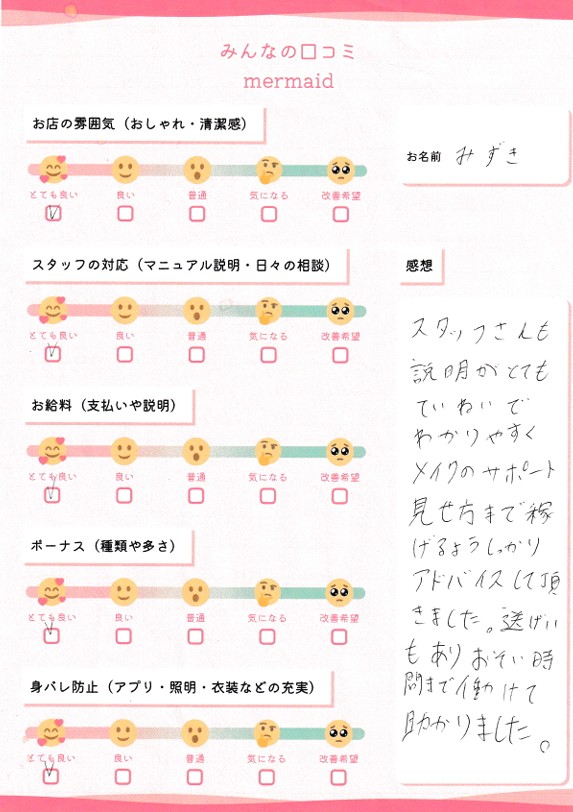 みんなの口コミ
mermaid
お店の雰囲気（おしゃれ・清潔感）
とても良い 良い 普通 気になる 改善希望
お名前 みずき
スタッフの対応（マニュアル説明・日々の相談）
とても良い 良い 普通 気になる 改善希望
お給料（支払いや説明）
とても良い 良い 普通 気になる 改善希望
ボーナス（種類や多さ）
とても良い 良い 普通 気になる 改善希望
身バレ防止（アプリ・照明・衣装などの充実）
とても良い 良い 普通 気になる 改善希望
感想
スタッフさんも
説明がとても
ていねいで
わかりやすく
メイクのサポート
見せ方まで稼
げるようしっかり
アドバイスして頂
きました。送げい
もありおそい時
間まで働けて
助かりました。